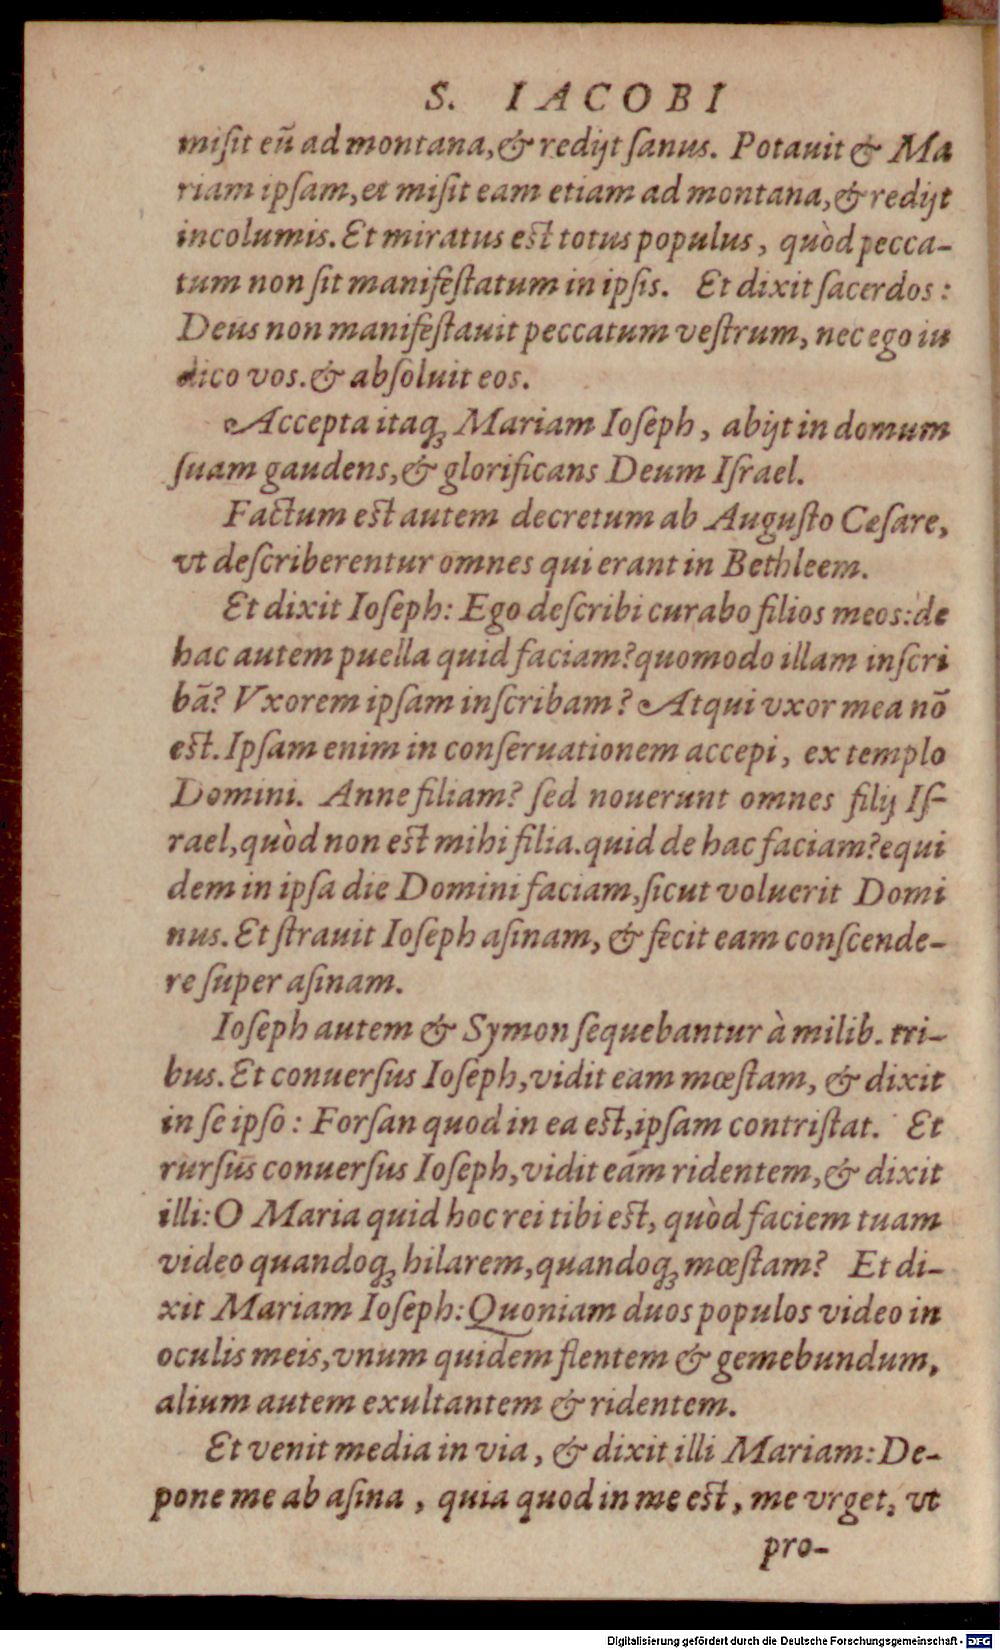 S. IACOBI
misit eũ ad montana, & redijt sanus. Potauit & Ma
riam ipsam, et misit eam etiam ad montana, & redijt
incolumis. Et miratus est totus populus, quòd pecca-
tum non sit manifestatum in ipsis. Et dixit sacerdos:
Deus non manifestauit peccatum vestrum, nec ego iu
dico vos. & absoluit eos.
Accepta itaq; Mariam Ioseph, abijt in domum
suam gaudens, & glorificans Deum Israel.
Factum est autem decretum ab Augusto Cesare,
vt describerentur omnes qui erant in Bethleem.
Et dixit Ioseph: Ego describi curabo filios meos: de
hac autem puella quid faciam? quomodo illam inscri
bã? Vxorem ipsam inscribam? Atqui vxor mea nõ
est. Ipsam enim in conseruationem accepi, ex templo
Domini. Anne filiam? sed nouerunt omnes filij Is-
rael, quòd non est mihi filia. quid de hac faciam? equi
dem in ipsa die Domini faciam, sicut voluerit Domi
nus. Et strauit Ioseph asinam, & fecit eam conscende-
re super asinam.
Ioseph autem & Symon sequebantur à milib. tri-
bus. Et conuersus Ioseph, vidit eam mœstam, & dixit
in se ipso: Forsan quod in ea est, ipsam contristat. Et
rursus conuersus Ioseph, vidit eam ridentem, & dixit
illi: O Maria quid hoc rei tibi est, quòd faciem tuam
video quandoq; hilarem, quandoq; mœstam? Et di-
xit Mariam Ioseph: Quoniam duos populos video in
oculis meis, vnum quidem flentem & gemebundum,
alium autem exultantem & ridentem.
Et venit media in via, & dixit illi Mariam: De-
pone me ab asina, quia quod in me est, me vrget, vt
pro-
Digitalisierung gefördert durch die Deutsche Forschungsgemeinschaft - DFG